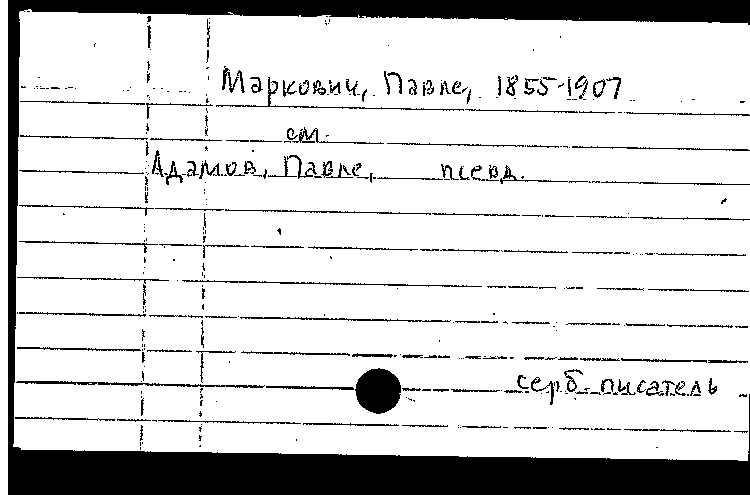 Маркович, Павле, 1855-1907
см.
Адамов, Павле, псевд.
серб. писатель